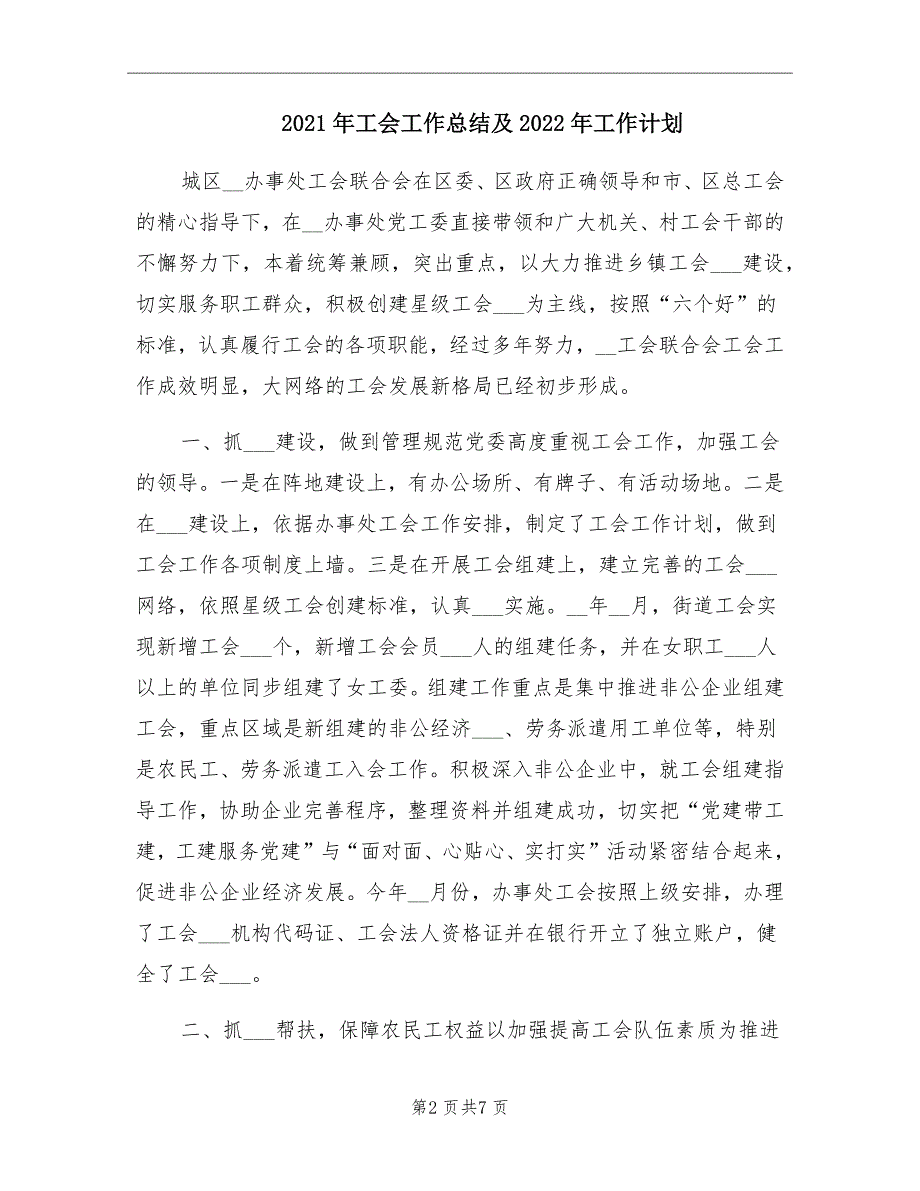 2021 年工会工作总结及 2022 年工作计划
城区__办事处工会联合会在区委、区政府正确领导和市、区总工会
的精心指导下，在__办事处党工委直接带领和广大机关、村工会干部的
不懈努力下，本着统筹兼顾，突出重点，以大力推进乡镇工会___建设，
切实服务职工群众，积极创建星级工会___为主线，按照“六个好”的
标准，认真履行工会的各项职能，经过多年努力，__工会联合会工会工
作成效明显，大网络的工会发展新格局已经初步形成。
一、抓___建设，做到管理规范党委高度重视工会工作，加强工会
的领导。一是在阵地建设上，有办公场所、有牌子、有活动场地。二是
在___建设上，依据办事处工会工作安排，制定了工会工作计划，做到
工会工作各项制度上墙。三是在开展工会组建上，建立完善的工会___
网络，依照星级工会创建标准，认真___实施。__年__月，街道工会实
现新增工会___个，新增工会会员___人的组建任务，并在女职工___人
以上的单位同步组建了女工委。组建工作重点是集中推进非公企业组建
工会，重点区域是新组建的非公经济___、劳务派遣用工单位等，特别
是农民工、劳务派遣工入会工作。积极深入非公企业中，就工会组建指
导工作，协助企业完善程序，整理资料并组建成功，切实把“党建带工
建，工建服务党建”与“面对面、心贴心、实打实”活动紧密结合起来，
促进非公企业经济发展。今年__月份，办事处工会按照上级安排，办理
了工会___机构代码证、工会法人资格证并在银行开立了独立账户，健
全了工会___。
二、抓___帮扶，保障农民工权益以加强提高工会队伍素质为推进
第 2 页 共 7 页